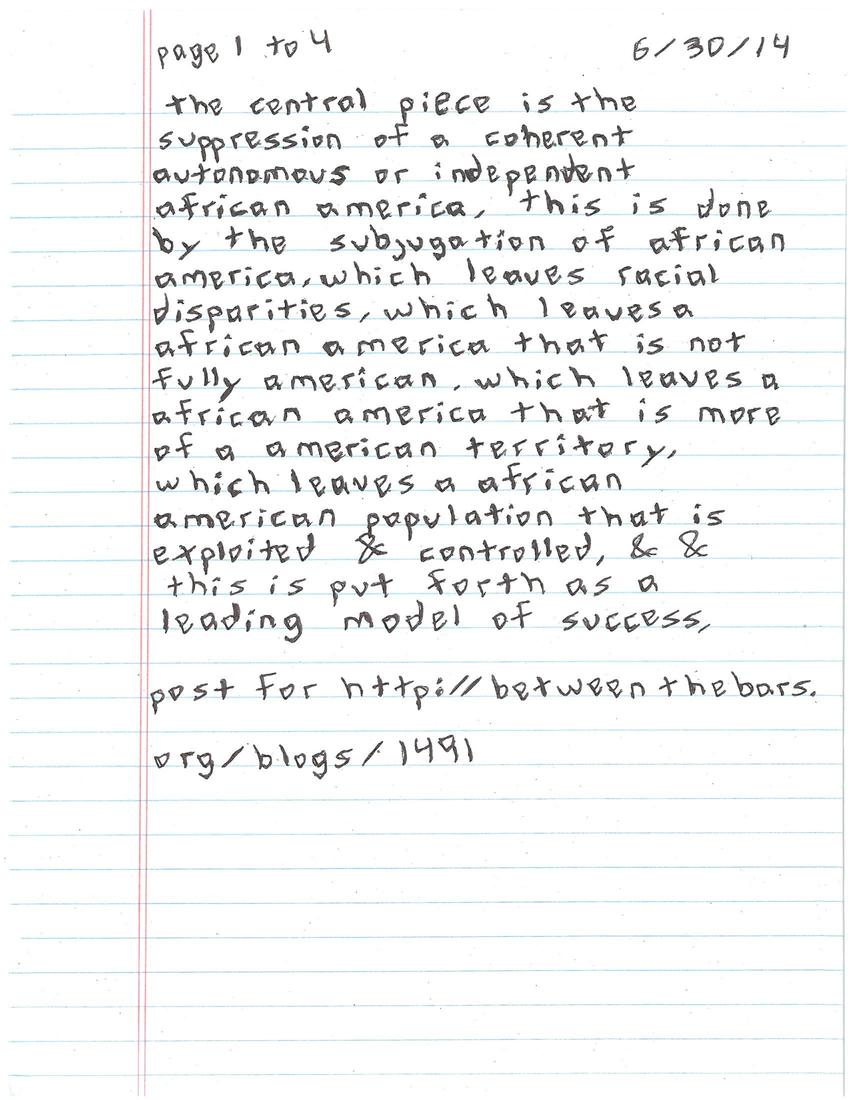 page 1 to 4 6/30/14
the central piece is the
suppression of a coherent
autonomous or independent
african america, this is done
by the subjugation of african
america, which leaves racial
disparities, which leaves a
african america that is not
fully american, which leaves a
african america that is more
of a american territory,
which leaves a african
american population that is
exploited & controlled, & &
this is put forth as a
leading model of success,
post for http://betweenthebars.
org/blogs/1491